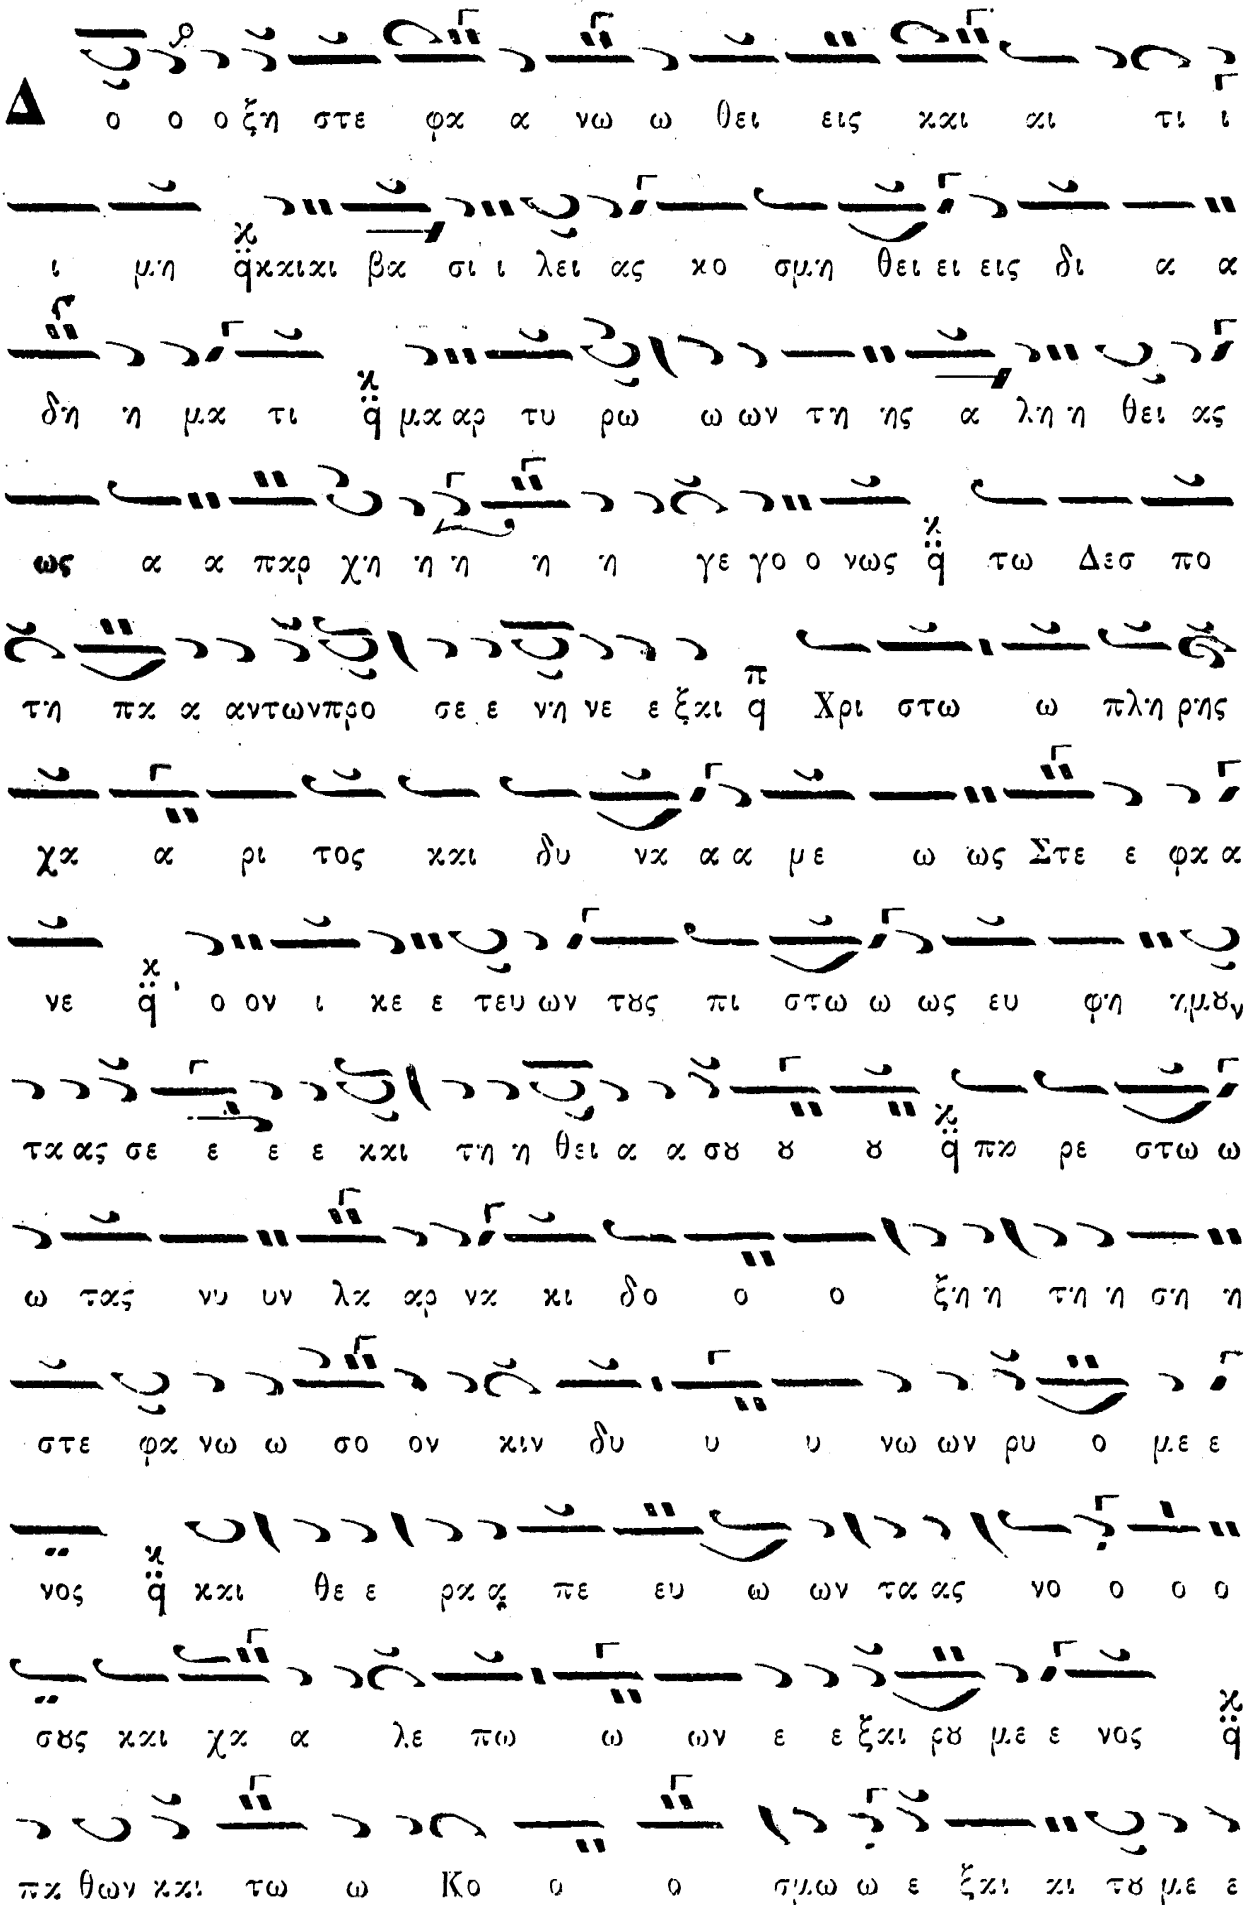 Δ ο ο ο ξη στε φα α νω ω θει εις και αι τι ι
ι μη κ q και αι βα σι ι λει ας κο σμη θει ει εις δι α α
δη η μα τι κ q μα αρ τυ ρω ω ων τη ης α λη η θει ας
ως α α παρ χη η η η η γε γο ο νως κ q τω Δεσ πο
τη πα α αντων προ σε ε νη νε ε ξαι π q Χρι στω ω πλη ρης
χα α ρι τος και δυ να α α με ω ως Στε ε φα α
νε κ q ο ον ι κε ε τευ ων τȣς πι στω ω ως ευ φη ημȣν
τα ας σε ε ε ε και τη η θει α α σȣ ȣ ȣ κ q πα ρε στω ω
ω τας νυ υν λα αρ να κι δο ο ο ξη η τη η ση η
στε φα νω ω σο ον κιν δυ υ υ νω ων ρυ ο με ε
νος κ q και θε ε ρα α πε ευ ω ων τα ας νο ο ο ο
σȣς και χα α λε πω ω ων ε ε ξαι ρȣ με ε νος κ q
πα θων και τω ω Κο ο ο σμω ω ε ξαι αι τȣ με ε